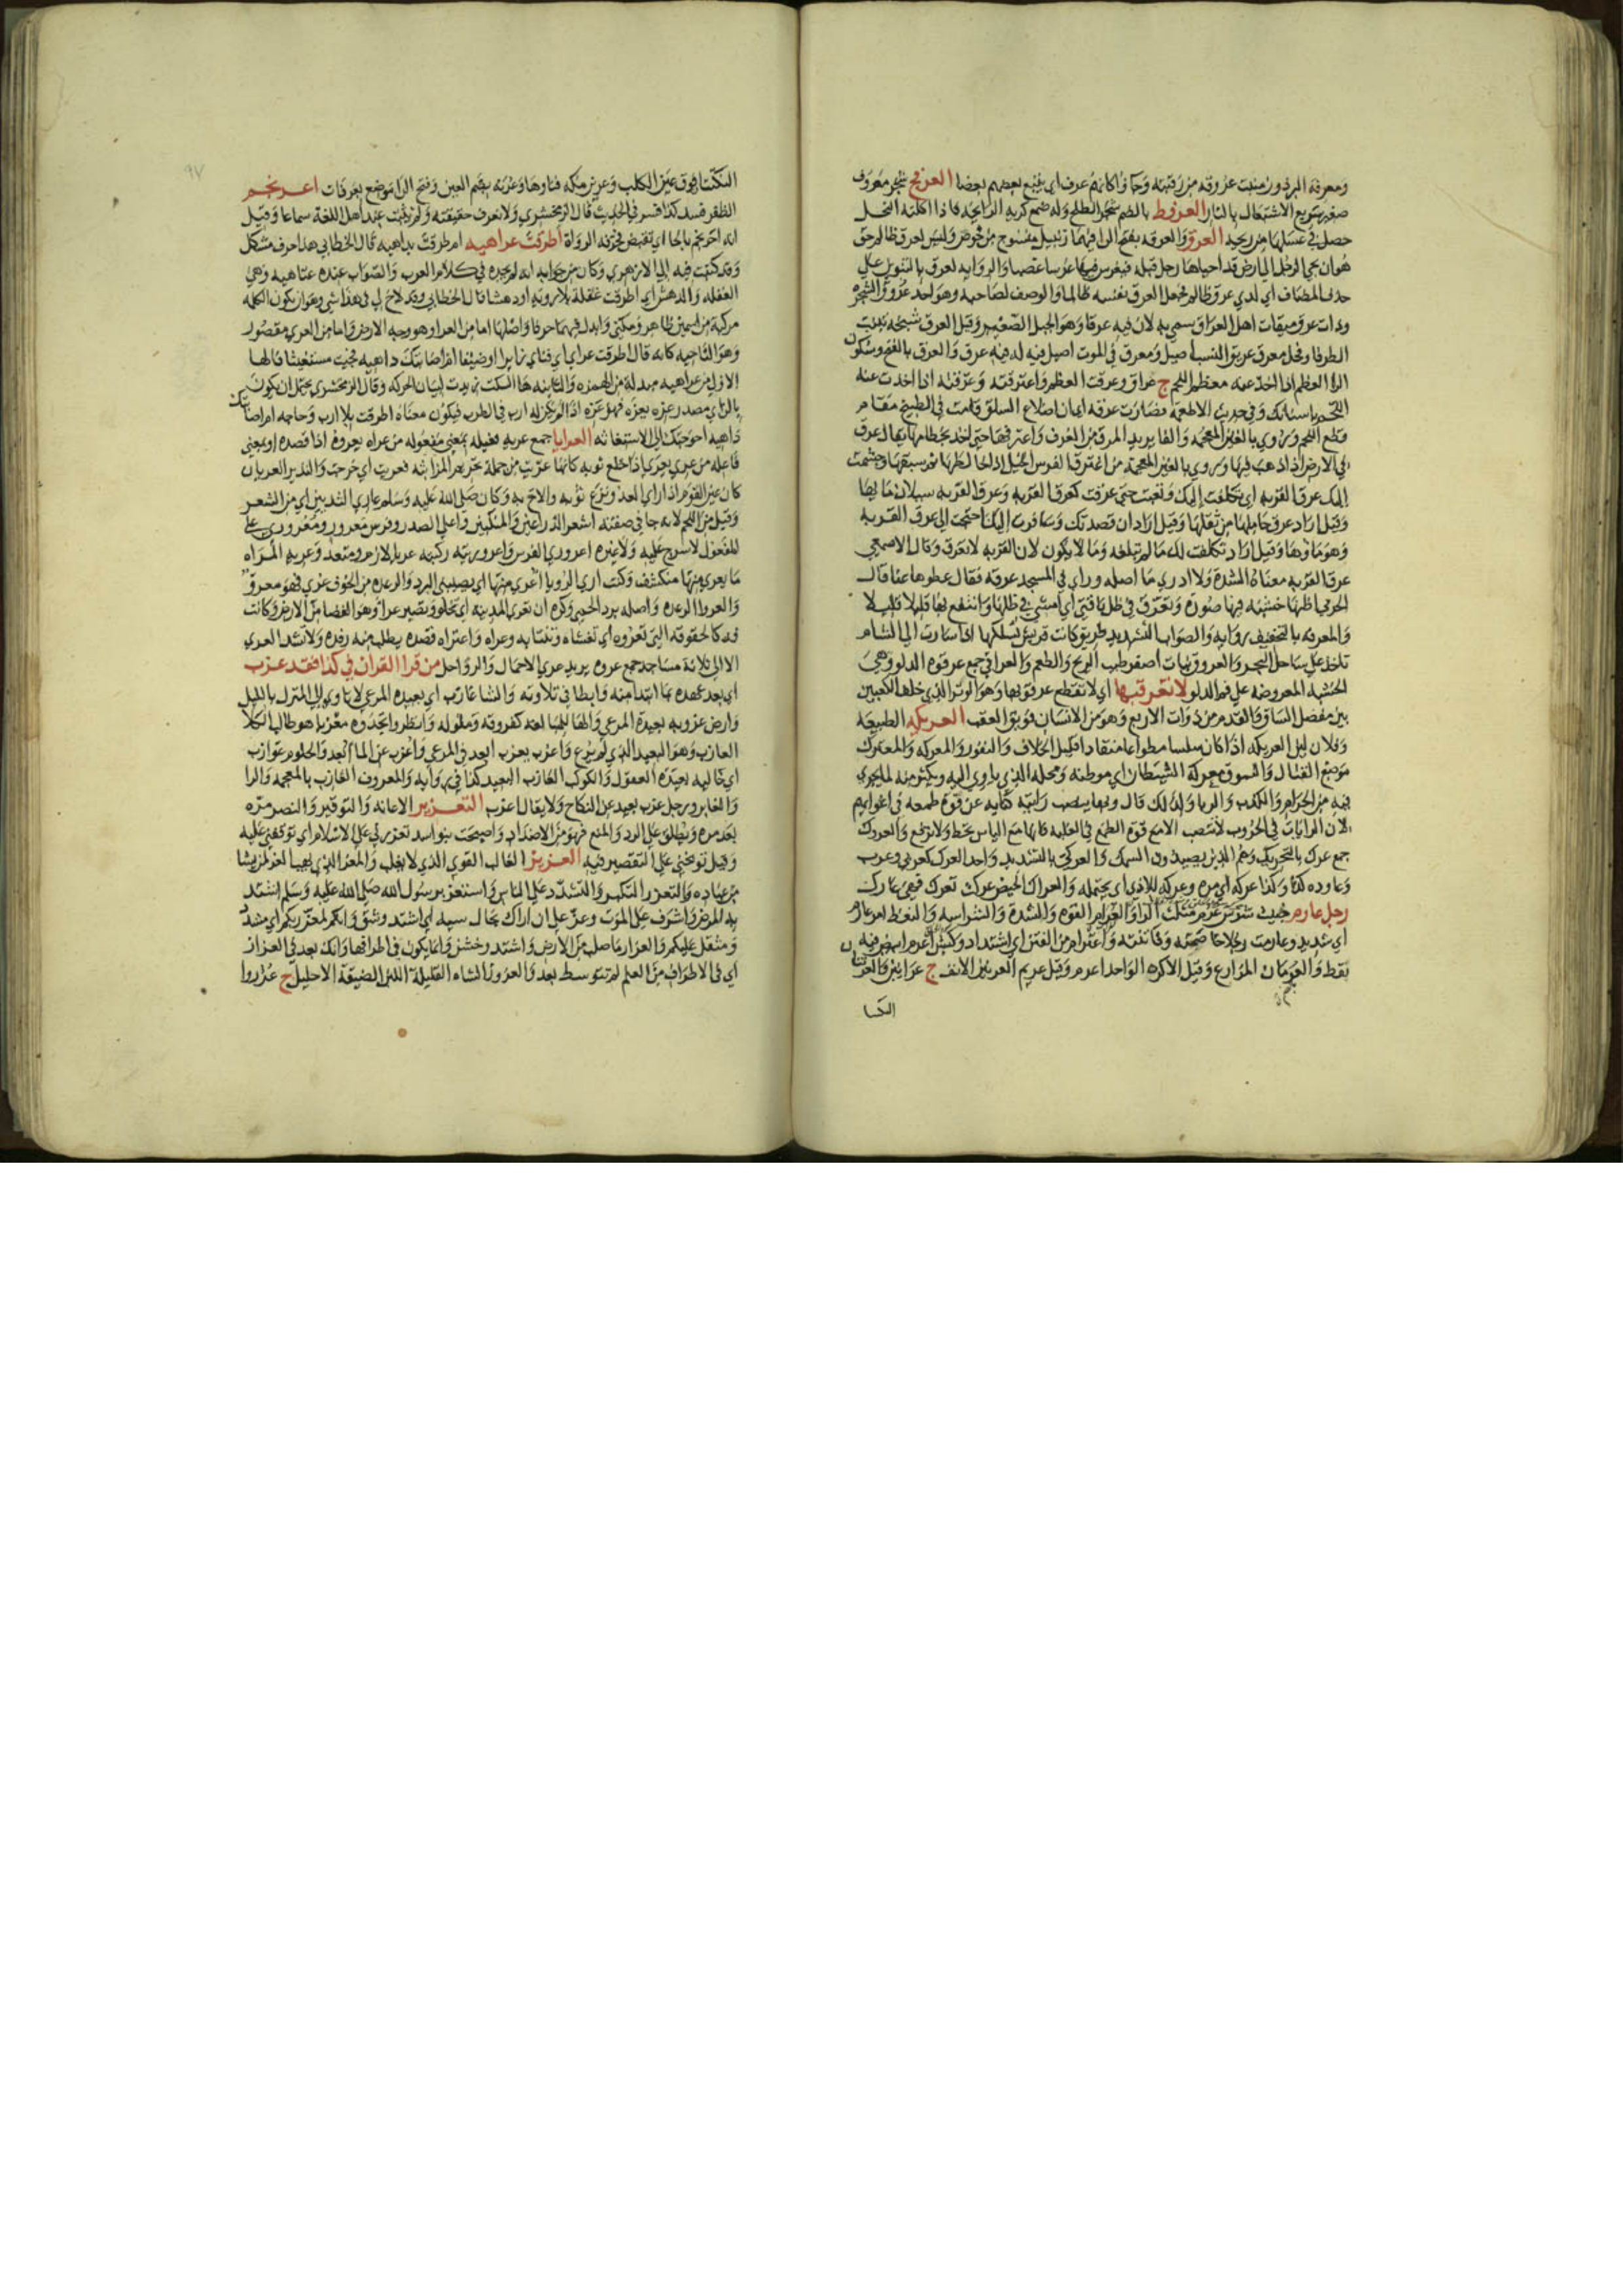 ومعرفة البرذون منبت عروقه من رقبته وجاؤا كانهم عرف اي يتبع بعضهم بعضا العرفج شجر معروف
صغير سريع الاشتعال بالنار العرفط بالضم شجر الطلح وله صمغ كريه الرايحة فاذا اكلته النحل
حصل في عسلها من ريحه العرق والعرقه بفتح الرا فيهما زنبيل منسوج من خوص وليس لعرق ظالم حق
هو ان يجي الرجل الي ارض قد احياها رجل قبله فيغرس فيها غرسا غصبا والرواية لعرق بالتنوين علي
حذف المضاف اي لذي عرق ظالم فجعل العرق نفسه ظالما والوصف لصاحبه وهو احد عروق الشجرة
وذات عرق ميقات اهل العراق سمي به لان فيه عرقا وهو الجبل الصغير وقيل العرق سبخة تنبت
الطرفا وفحل معرق عريق النسب اصيل ومعرق في الموت اصيل فيه له فيه عرق والعرق بالفتح وسكون
الرا العظم اذا اخذ عنه معظم اللحم ج عراق وعرقت العظم واعترقته وتعرقته اذا اخذت عنه
اللحم باسنانك وفي حديث الاطعمة فصارت عرقه اي ان اضلاع السلق قامت في الطبيخ مقام
قطع اللحم وروي بالغين المعجمه والفا يريد المرق من الغرف
في الارض اذا ذهب فيها وروي بالغين المعجمه من اغترق الفرس الخيل اذا خالطها ثم سبقها وجشمت
اليك عرق القربه اي تكلفت اليك وتعبت حتي عرقت كعرق القربه وعرق القربه سيلان مايها
وقيل اراد عرق حاملها من ثقلها وقيل اراد اني قصدتك وسافرت اليك واحتجت الي عرق القربه
وهو ماؤها وقيل اراد تكلفت لك ما لم تبلغه وما لا يكون لان القربه لا تعرق وقال الاصمعي
عرق القربه معناه الشدة ولا ادري ما اصله وراي في المسجد عرقه فقال غطوها عنا قال
الحربي اظنها خشبة فيها صورة وتعرق في ظل ناقتي اي امشي في ظلها وانتفع بها قليلا قليلا
والمعرقه بالتخفيف رواية والصواب التشديد طريق كانت قريش تسلكها اذا سارت الي الشام
تاخذ علي ساحل البحر والعروق نبات اصفر طيب الريح والطعم والعراقي جمع عرقوة الدلو وهي
الخشبة المعروضة علي فم الدلو لا تعرقبها اي لا تقطع عرقوبها وهو الوتر الذي خلف الكعبين
بين مفصل الساق والقدم من ذوات الاربع وهو من الانسان فويق العقب العريكه الطبيعة
وفلان لين العريكة اذا كان سلسا مطواعا منقادا قليل الخلاف والنفور والمعركه والمعترك
موضع القتال والسوق معركة الشيطان اي موطنه ومحله الذي ياوي اليه ويكثر منه لما يجري
فيه من الحرام والكذب والربا ولذلك قال وبها ينصب رايته كناية عن قوة طمعه في اغوايهم
لان الرايات في الحروب لا تنصب الا مع قوة الطمع في الغلبة فانها مع الياس تحط ولا ترفع والعروك
جمع عرك بالتحريك وهم الذين يصيدون السمك والعركي بالتشديد واحد العرك كعربي وعرب
وعاوده كذا وكذا عركة اي مرة وعركه للاذي اي يحتمله والعراك الحيض عركت تعرك فهي عارك
رجل عارم خبيث شرير
نقط والعرمان المزارع وقيل الاكره الواحد اعرم وقيل عريم العرنين الانف ج عرانين والعرن
النكتتان فوق عين الكلب وعرين مكه فناوها وعرنه بضم العين وفتح الرا موضع بعرفات اعرنجم
الظفر فسد كذا فسر في الحديث قال الزمخشري ولا نعرف حقيقته ولم يثبت عند اهل اللغة سماعا وقيل
انه احرنجم بالحا اي تقبض فحرفه الرواة اطرقت عراهيه ام طرقت بداهيه قال الخطابي هذا حرف مشكل
وقد كتبت فيه الي الازهري وكان من جوابه انه لم يجده في كلام العرب والصواب عنده عتاهيه وهي
الغفله والدهش اي اطرقت غفلة بلا روية او دهشا قال الخطابي وقد لاح لي في هذا شي وهو ان يكون الكلمه
مركبة من اسمين ظاهر ومكني وابدل فيهما حرفا واصلها اما من العرا وهو وجه الارض واما من العري مقصور
وهو الناحيه كانه قال اطرقت عراي اي فناي زايرا وضيفا ام اصابتك داهيه فجيت مستغيثا فالها
الاولي من عراهيه مبدلة من الهمزه والثانيه ها السكت زيدت لبيان الحركه وقال الزمخشري يحتمل ان يكون
بالزاي مصدر عزه يعزه فهو عزه اذا لم يكن له ارب في الطرب فيكون معناه اطرقت بلا ارب وحاجه ام اصابتك
داهيه احوجتك الي الاستغاثه العرايا جمع عريه فعيله بمعني مفعوله من عراه يعروه اذا قصده او بمعني
فاعله من عري يعري اذا خلع ثوبه كانها عريت من جملة تحريم المزابنه فعريت اي خرجت والنذير العريان
كان عين القوم اذا راي العدو نزع ثوبه والاح به وكان صلى الله عليه وسلم عاري الثديين اي من الشعر
وقيل من اللحم لانه جا في صفته اشعر الذراعين والمنكبين واعلي الصدر وفرس معرور ومعروري علي
المفعول لا سرج عليه ولا غيره اعروري الفرس واعروريته ركبته عريا لازم ومتعد وعرية المراه
ما يعري منها منكشف وكنت اري الرويا اعري منها اي يصيبني البرد والرعده من الخوف عري فهو معرو
والعروا الرعده واصله برد الحمي وكره ان تعري المدينه اي تخلو وتصير عرا وهو الفضا من الارض وكانت
فدك لحقوقه التي تعروه اي تغشاه وتنتابه وعراه واعتراه قصده يطلب منه رفده ولا تشد العري
الا الي ثلاثة مساجد جمع عروه يريد عري الاحمال والرواحل من قرا القران في كذا فقد عزب
اي بعد عهده بما ابتدا منه وابطا في تلاوته والشا عازب اي بعيده المرعي لا تاوي الي المنزل بالليل
وارض عزوبه بعيدة المرعي والها للمبالغة كفروقه وملوله وانظروا تجدوه معزبا هو طالب الكلا
العازب وهو البعيد الذي لم يرع واعزب يعزب ابعد في المرعي واعزب عن الما ابعد والحلوم عوازب
اي خاليه بعيدة العقول والكوكب العازب البعيد كذا في رواية والمعروف الغارب بالمعجمه والرا
والغابر ورجل عزب بعيد عن النكاح ولا يقال اعزب التعزير الاعانه والتوقير والنصر مره
بعد مره ويطلق علي الرد والمنع فهو من الاضداد واصبحت بنو اسد تعزرني علي الاسلام اي توقفني عليه
وقيل توبخني علي التقصير فيه العزيز الغالب القوي الذي لا يغلب والمعز الذي يهب العز لمن يشا
من عباده والتعزز التكبر والتشدد علي الناس واستعز برسول الله صلى الله عليه وسلم اشتد
به المرض واشرف علي الموت وعز علي ان اراك بحال سيه اي اشتد وشق وانكم لمعزز بكم اي مشدد
ومثقل عليكم والعزاز ما صلب من الارض واشتد وخشن وانما يكون في اطرافها وانك بعد في العزاز
اي في الاطراف من العلم لم تتوسط بعد والعزوز الشاه القليلة اللبن الضيقة الاحليل ج عزز